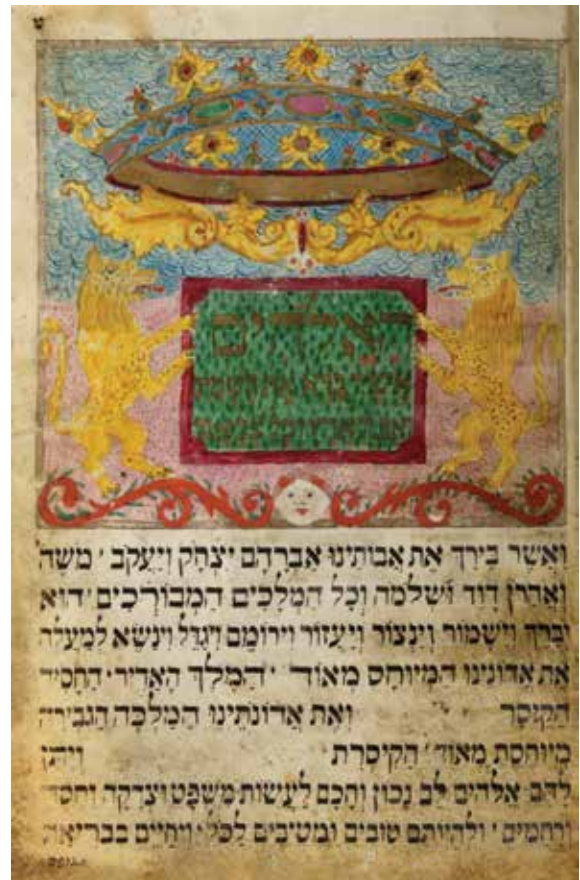 ט
האלהים
אשר ברא את השמים
ואשר בירך את אבותינו אברהם יצחק ויעקב ׳ משה
ואהרן דוד ושלמה וכל המלכים המבורכים ׳ הוא
יברך וישמור וינצור ויעזור וירומם ויגדל וינשא למעלה
את אדונינו המיוחס מאוד ׳ המלך האדיר ׳ החסיד
הקיסר ואת אדונתינו המלכה הגבירה
מיוחסת מאוד ׳ הקיסרת ויתן
להם אלהים לב נכון וחכם לעשות משפט וצדקה וחסד
ורחמים ׳ ולהיותם טובים ומטיבים לכל ׳ ויחיים בבריאה